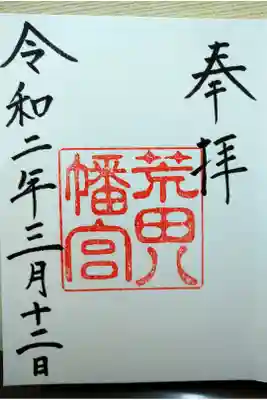 奉拝
荒田八
幡宮
令和二年三月十二日